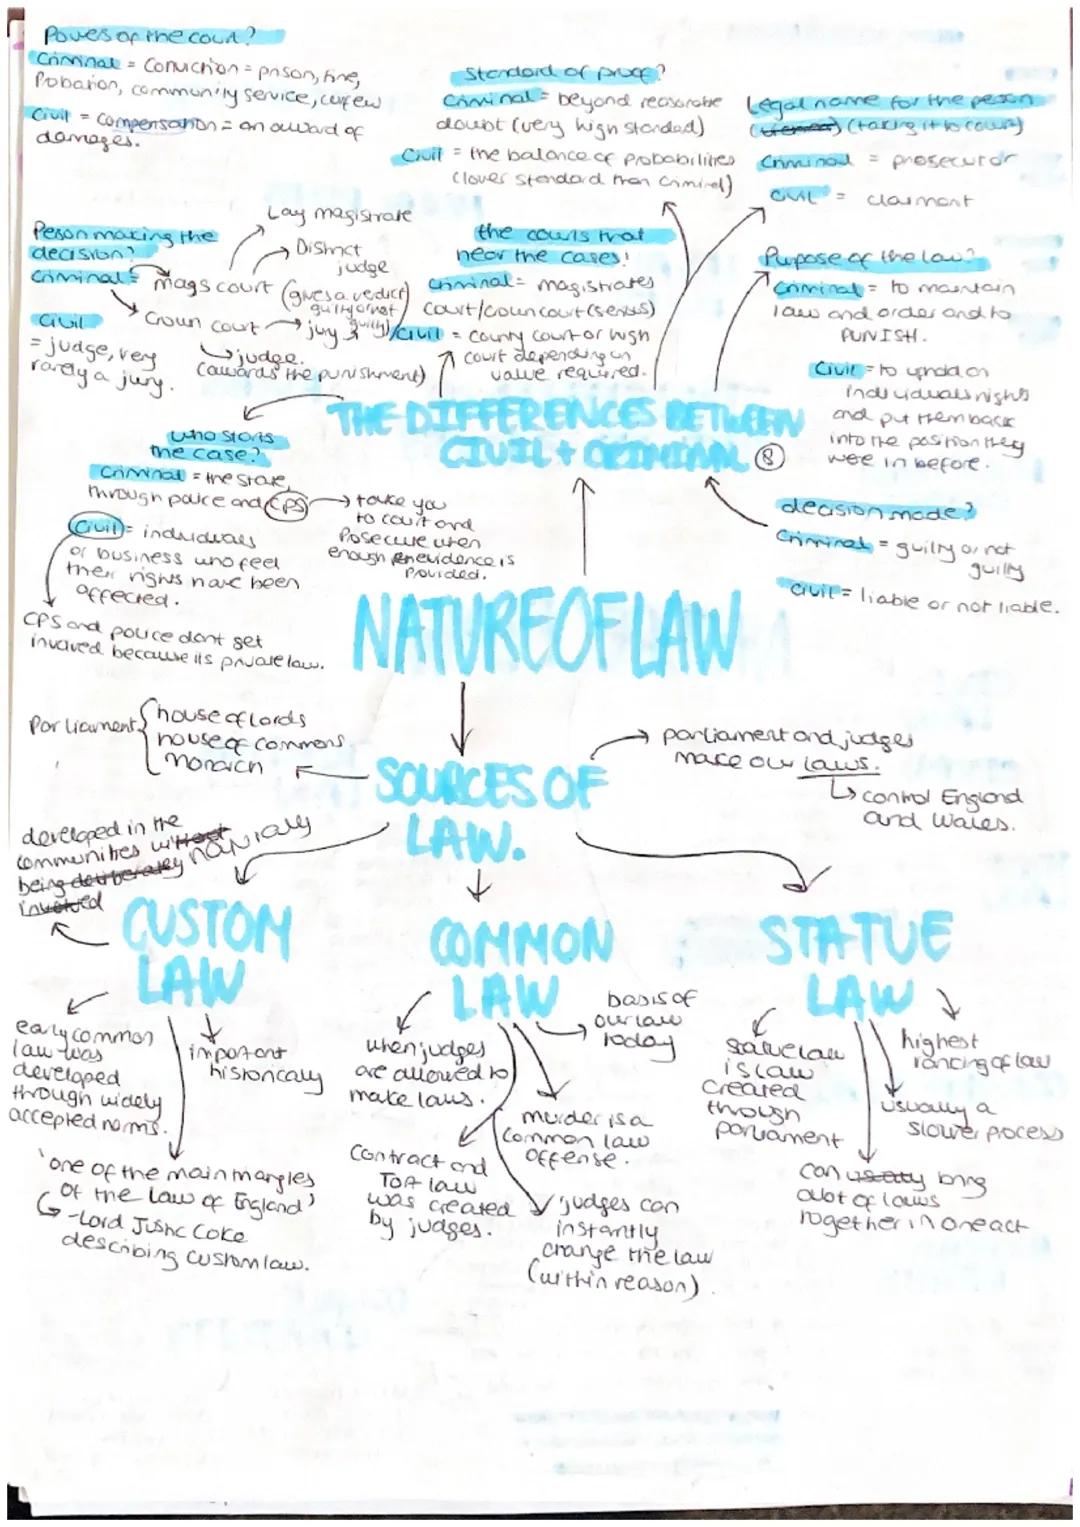 Powers of the court?
Criminal = Conviction = prison, fine,
Probation, community service, curfew
Civil = compensation = an award of
damages.
Standard of proof?
Criminal = beyond reasonable
doubt (very high standard)
Civil = the balance of probabilities
(lower standard than criminal)
Legal name for the person
(taking it to court)
Criminal = prosecutor
Civil = claimant
Person making the
decision?
Criminal =
mags court
Lay magistrate
District
judge
Crown court
(gives a verdict
guilty or not
guilty)
jury
judge.
(awards the punishment)
Civil
= judge, very
rarely a jury.
the courts that
hear the cases!
Criminal = magistrates
court/crown court (serious)
Civil = county court or high
court depending on
value required.
Purpose of the law?
Criminal = to maintain
law and order and to
PUNISH.
Civil = to uphold an
individuals rights
and put them back
into the position they
were in before.
THE DIFFERENCES BETWEEN
CIVIL + CRIMINAL (8)
who starts
the case?
Criminal = the state,
through police and CPS
take you
to court and
Prosecute when
enough evidence is
Provided.
Civil = individuals
or business who feel
their rights have been
affected.
CPS and police dont get
involved because its private law.
decision made?
Criminal = guilty or not
guilty
Civil = liable or not liable.
NATURE OF LAW
Parliament
house of lords
house of commons
Monarch
SOURCES OF
LAW.
parliament and judges
make our laws.
control England
and Wales.
developed in the
communities without naturally
being deliberately
invoked
CUSTOM
LAW
early common
law was
developed
through widely
accepted norms.
important
historically
'one of the main triangles
of the law of England'
- Lord Justic Coke
describing custom law.
COMMON
LAW
when judges
are allowed to
make laws.
basis of
our law
today
murder is a
common law
offense.
Contract and
Tort law
was created
by judges.
judges can
instantly
change the law
(within reason).
STATUE
LAW
statue law
is law
created
through
parliament
highest
ranking of law
usually a
slower process
can usually bring
alot of laws
together in one act